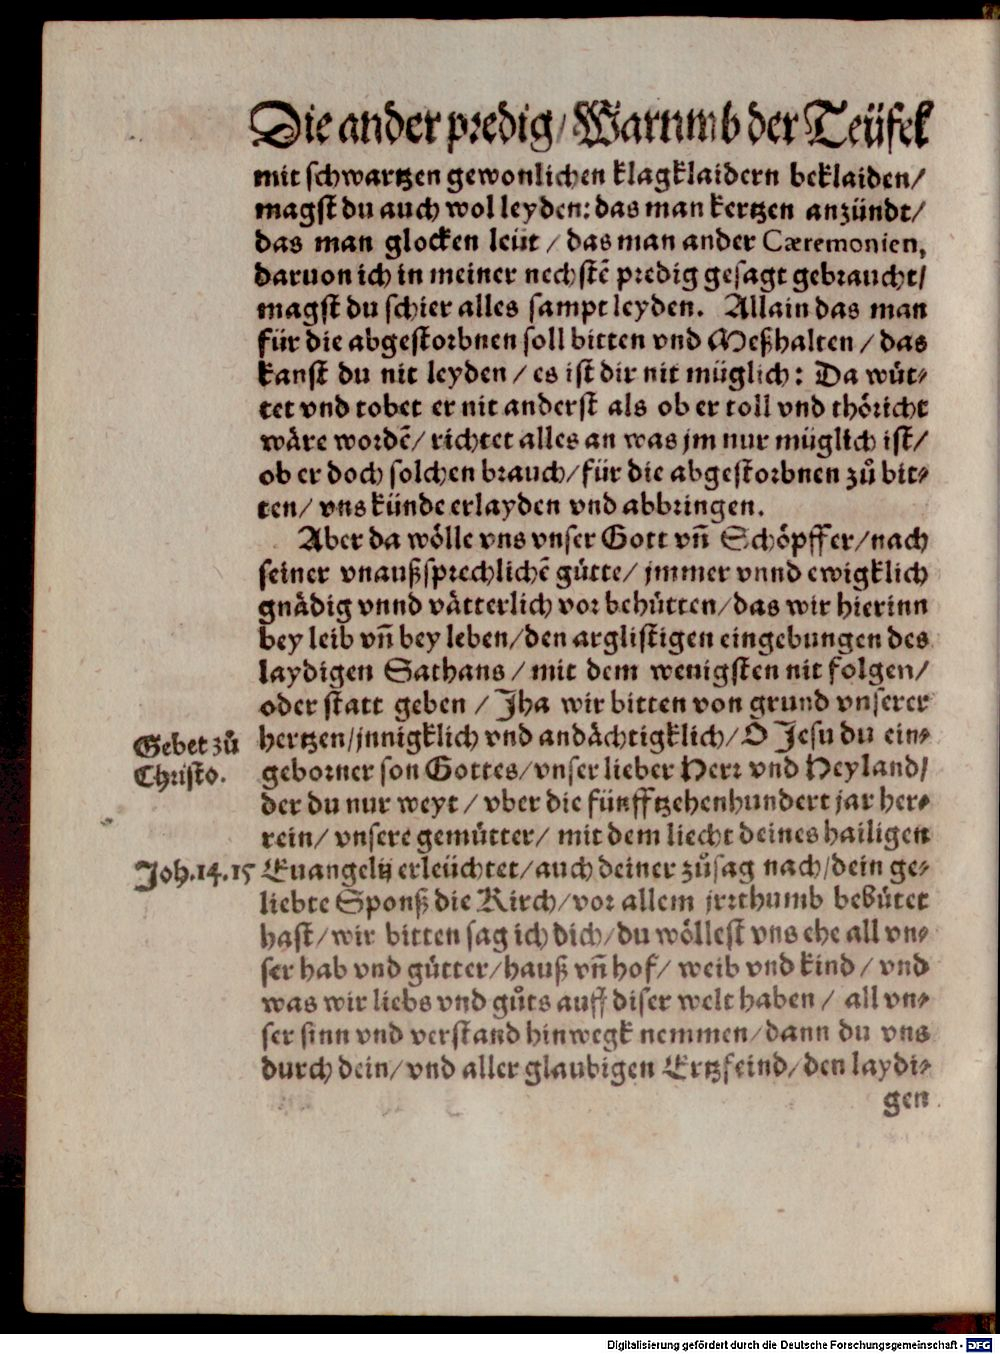 Die ander predig / Warumb der Teüfel
mit schwartzen gewonlichen klagklaidern beklaiden /
magst du auch wol leyden: das man kertzen anzündt /
das man glocken leüt / das man ander Cæremonien,
daruon ich in meiner nechstẽ predig gesagt gebraucht /
magst du schier alles sampt leyden. Allain das man
für die abgestorbnen soll bitten vnd Meßhalten / das
kanst du nit leyden / es ist dir nit müglich: Da wüt⸗
tet vnd tobet er nit anderst als ob er toll vnd thöricht
wäre wordẽ / richtet alles an was jm nur müglich ist /
ob er doch solchen brauch / für die abgestorbnen zů bit⸗
ten / vns künde erlayden vnd abbringen.
Aber da wölle vns vnser Gott vñ Schöpffer / nach
seiner vnaußsprechlichẽ gütte / jmmer vnnd ewigklich
gnädig vnnd vätterlich vor behütten / das wir hierinn
bey leib vñ bey leben / den arglistigen eingebungen des
laydigen Sathans / mit dem wenigsten nit folgen /
oder statt geben / Jha wir bitten von grund vnserer
Gebet zů
Christo.
hertzen / jnnigklich vnd andächtigklich / O Jesu du ein⸗
geborner son Gottes / vnser lieber Herr vnd Heyland /
der du nur weyt / vber die fünfftzehenhundert jar her⸗
rein / vnsere gemütter / mit dem liecht deines hailigen
Joh. 14. 15
Euangelij erleüchtet / auch deiner zůsag nach / dein ge⸗
liebte Sponß die Kirch / vor allem jrrthumb behütet
hast / wir bitten sag ich dich / du wöllest vns ehe all vn⸗
ser hab vnd gütter / hauß vñ hof / weib vnd kind / vnd
was wir liebs vnd gůts auff diser welt haben / all vn⸗
ser sinn vnd verstand hinwegk nemmen / dann du vns
durch dein / vnd aller glaubigen Ertzfeind / den laydi⸗
gen
Digitalisierung gefördert durch die Deutsche Forschungsgemeinschaft - DFG